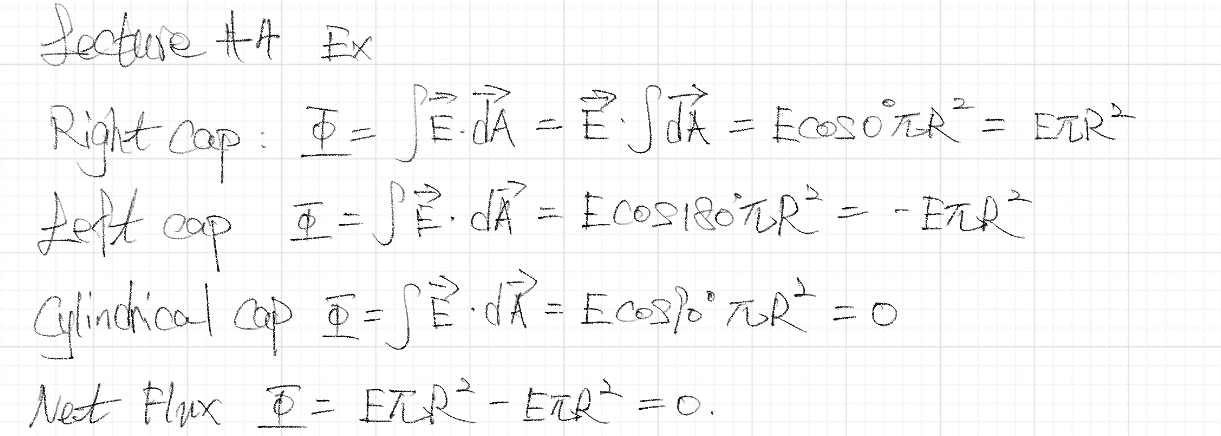 Lecture #4 Ex
Right cap: Φ = ∫E⃗·d⃗A = E⃗·∫d⃗A = E cos 0° πR² = EπR²
Left cap Φ = ∫E⃗·dA⃗ = E cos 180° πR² = -EπR²
Cylindrical cap Φ = ∫E⃗·dA⃗ = E cos 90° πR² = 0
Net Flux Φ = EπR² - EπR² = 0.